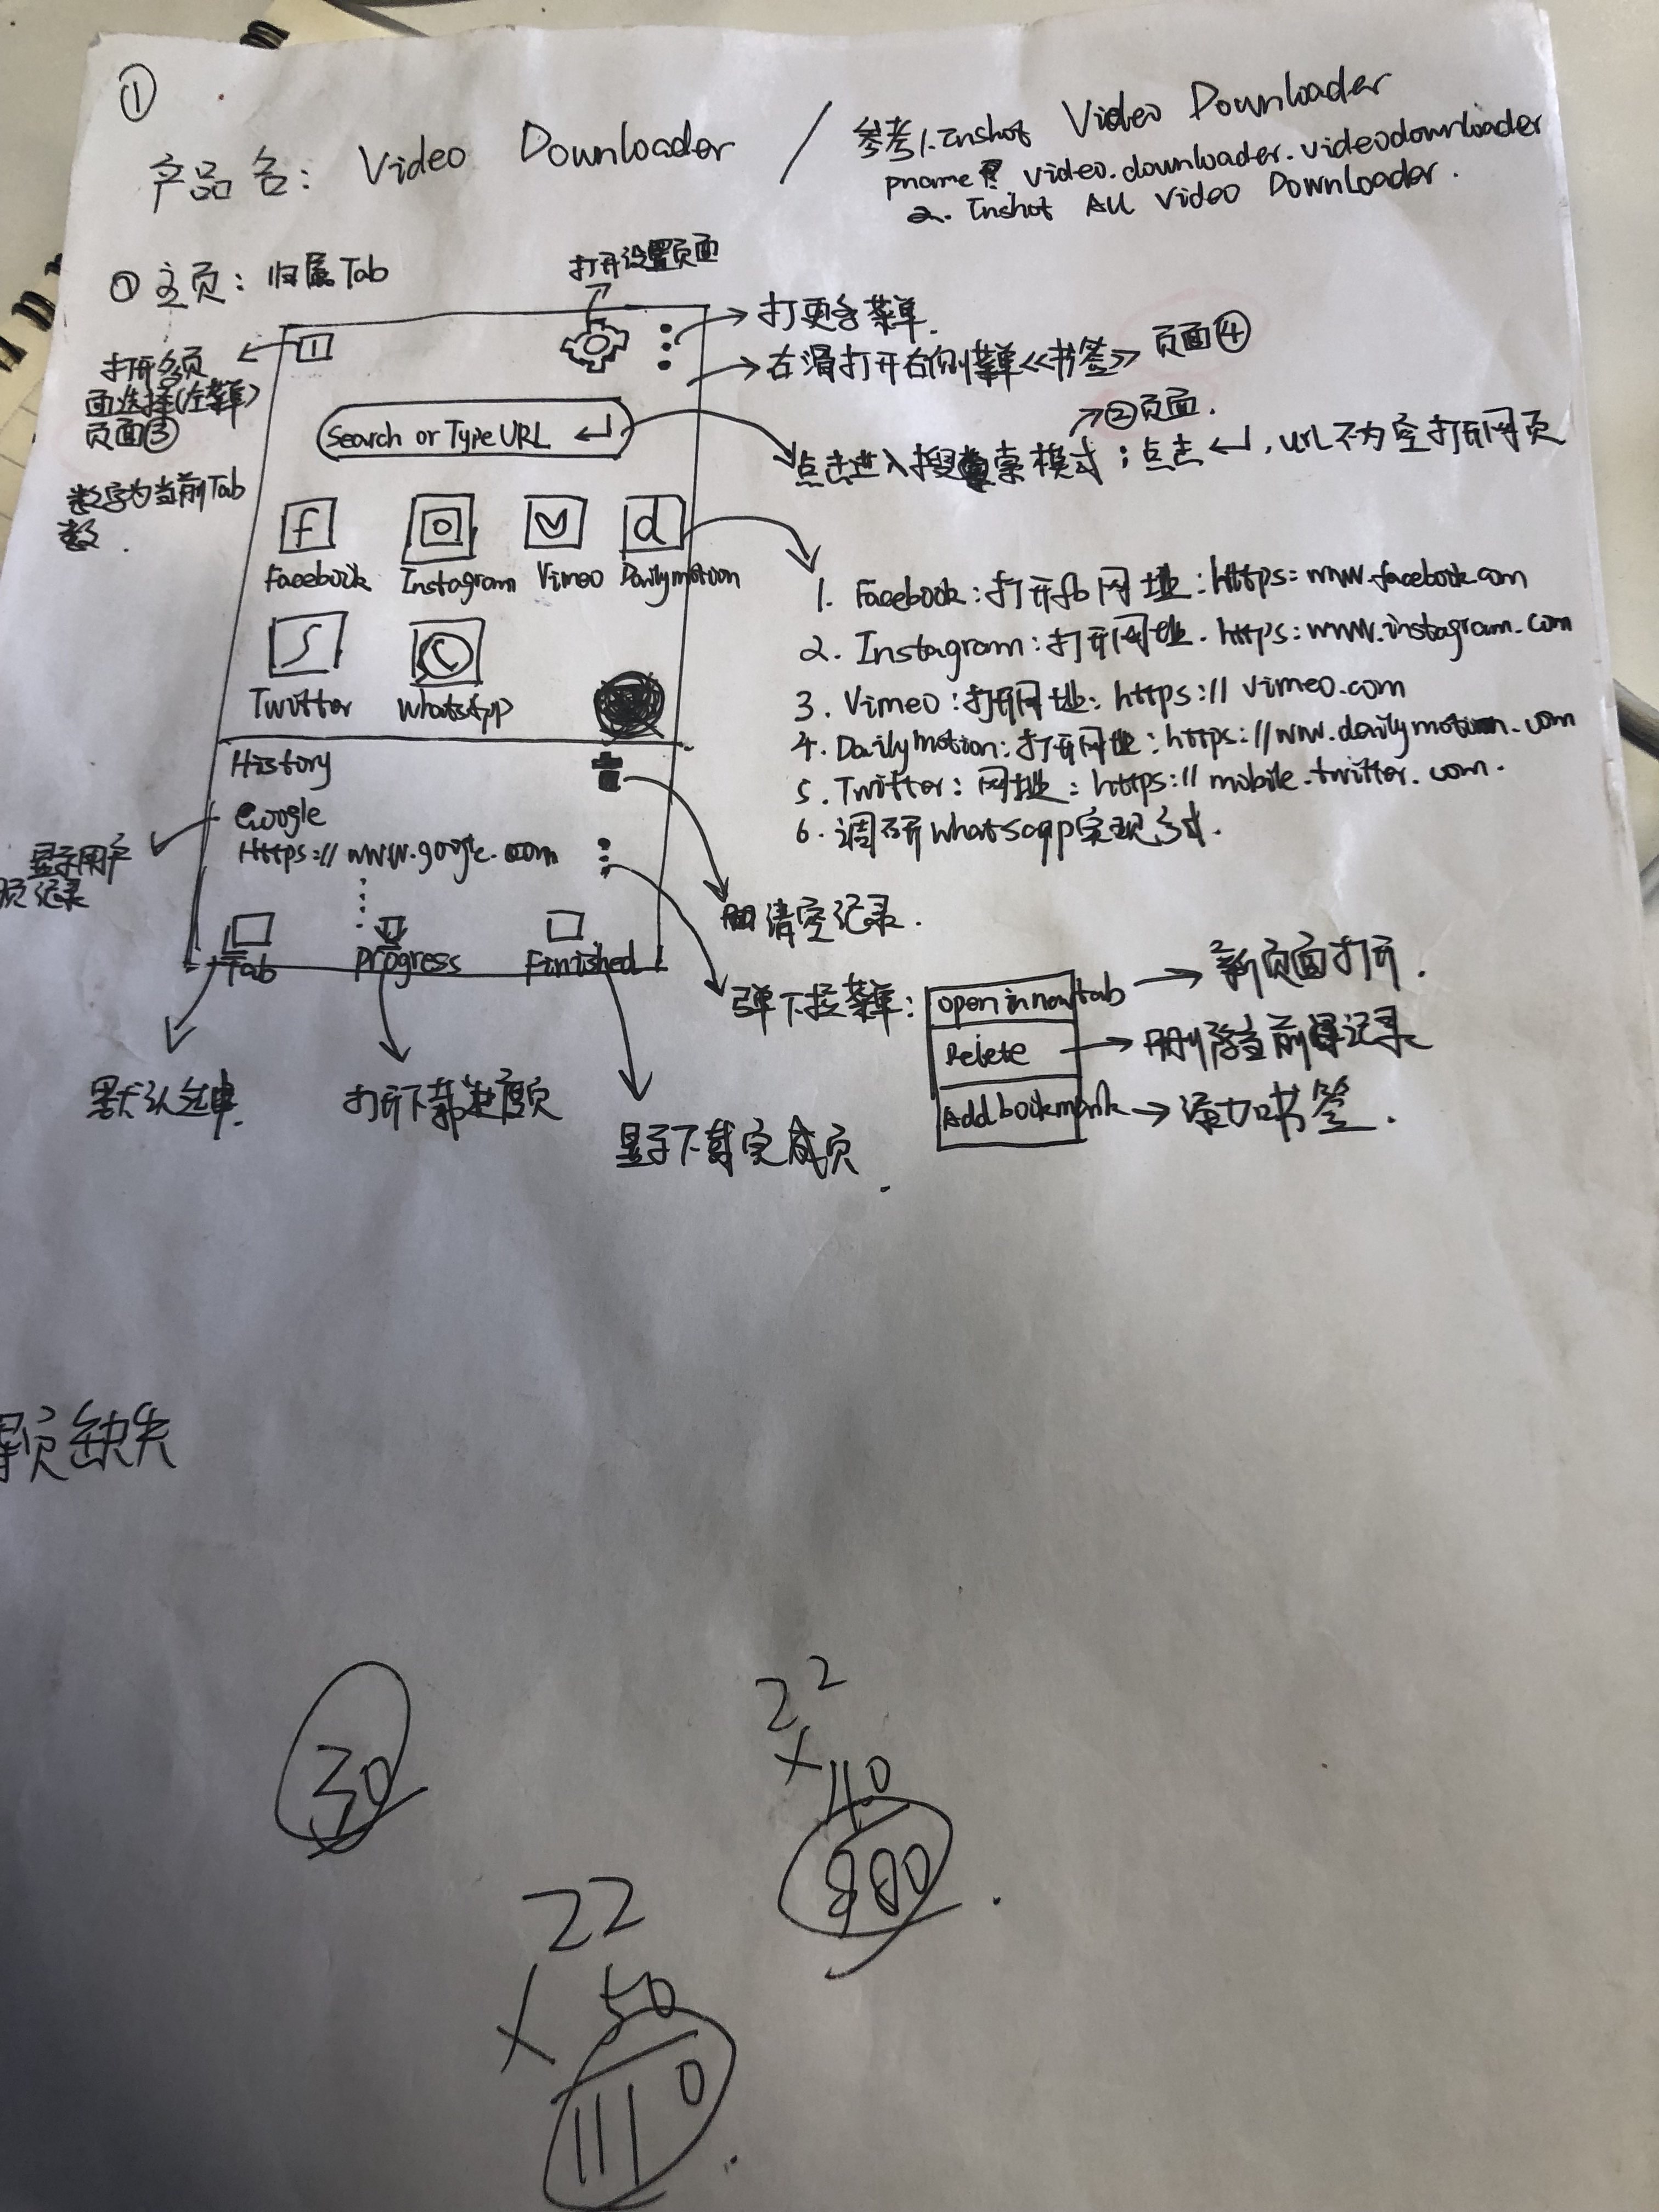 ①
产品名: Video Downloader / 参考1. Inshot Video Downloader
pname video.downloader.videodownloader
2. Inshot All Video Downloader.
① 主页: 归属Tab
打开设置页面
打更多菜单.
右滑打开右侧菜单《书签》 页面④
打开多页
面选择(左菜单)
页面③
数字为当前Tab
数.
1
Search or Type URL
→②页面.
点击进入搜索模式; 点击↵, url不为空打开网页
Facebook Instagram Vimeo Dailymotion
Twitter WhatsApp
1. Facebook: 打开fb网址: https: www.facebook.com
2. Instagram: 打开网址. https: www.instagram.com
3. Vimeo: 打开网址: https:// vimeo.com
4. Dailymotion: 打开网址: https://www.dailymotion.com
5. Twitter: 网址: https:// mobile.twitter.com.
6. 调研whatsapp实现方式.
History
Google
Https:// www.google.com
显示用户
页记录
清空记录.
Tab Progress Finished
弹下拉菜单:
Open in new tab → 新页面打开.
Delete → 删除当前记录
Add bookmark → 添加书签.
默认选中.
打开下载进度页
显示下载完成页.
页缺失
30
22
× 40
880
22
× 50
1110